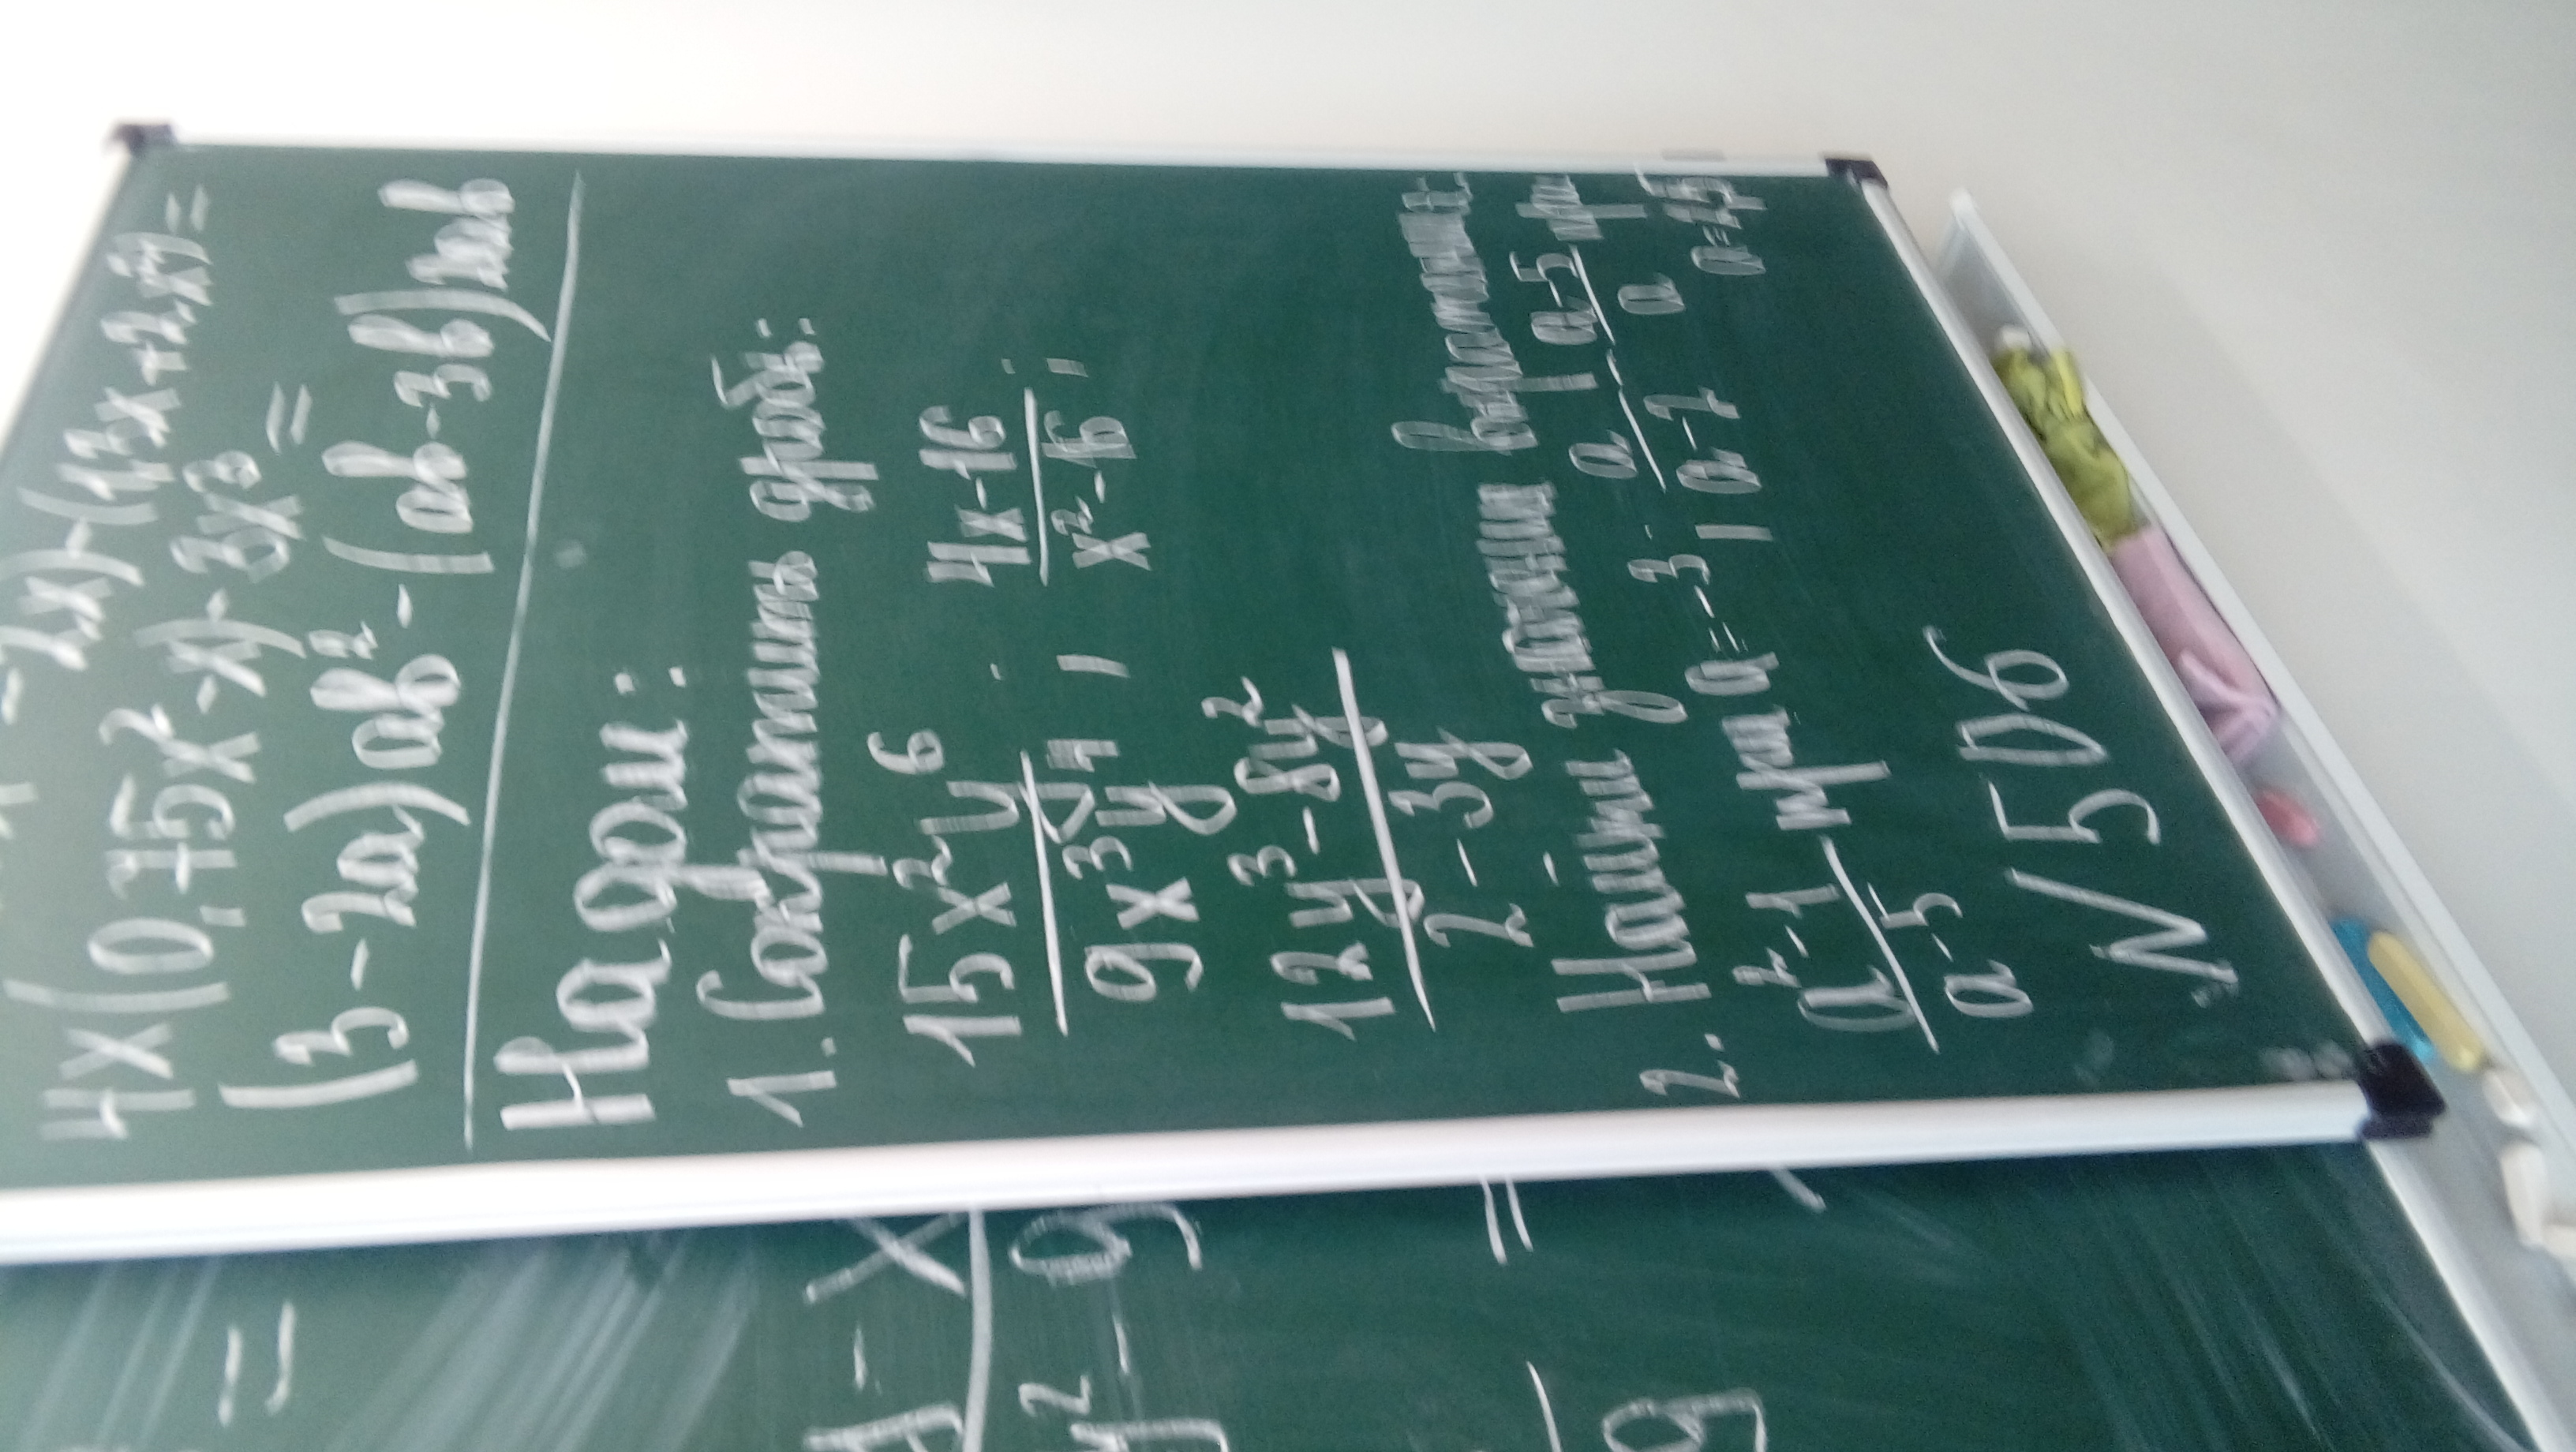 - 2x) - (4,3x + 2x²) =
4x(0,75x² - x) - 3x³ =
(3 - 2a)ab² - (ab - 3b)2ab
На дом:
1. Сократить дробь:
15x²y⁶ / 9x³y⁴ ; 4x-16 / x²-16 ;
12y³ - 8y² / 2 - 3y
2. Найти значения выражений:
a²-1 / a-5 при a = -3 ; a / a-7 - a-5 / a при a=1,5
№ 506
=
- x
y² - 9
=
9